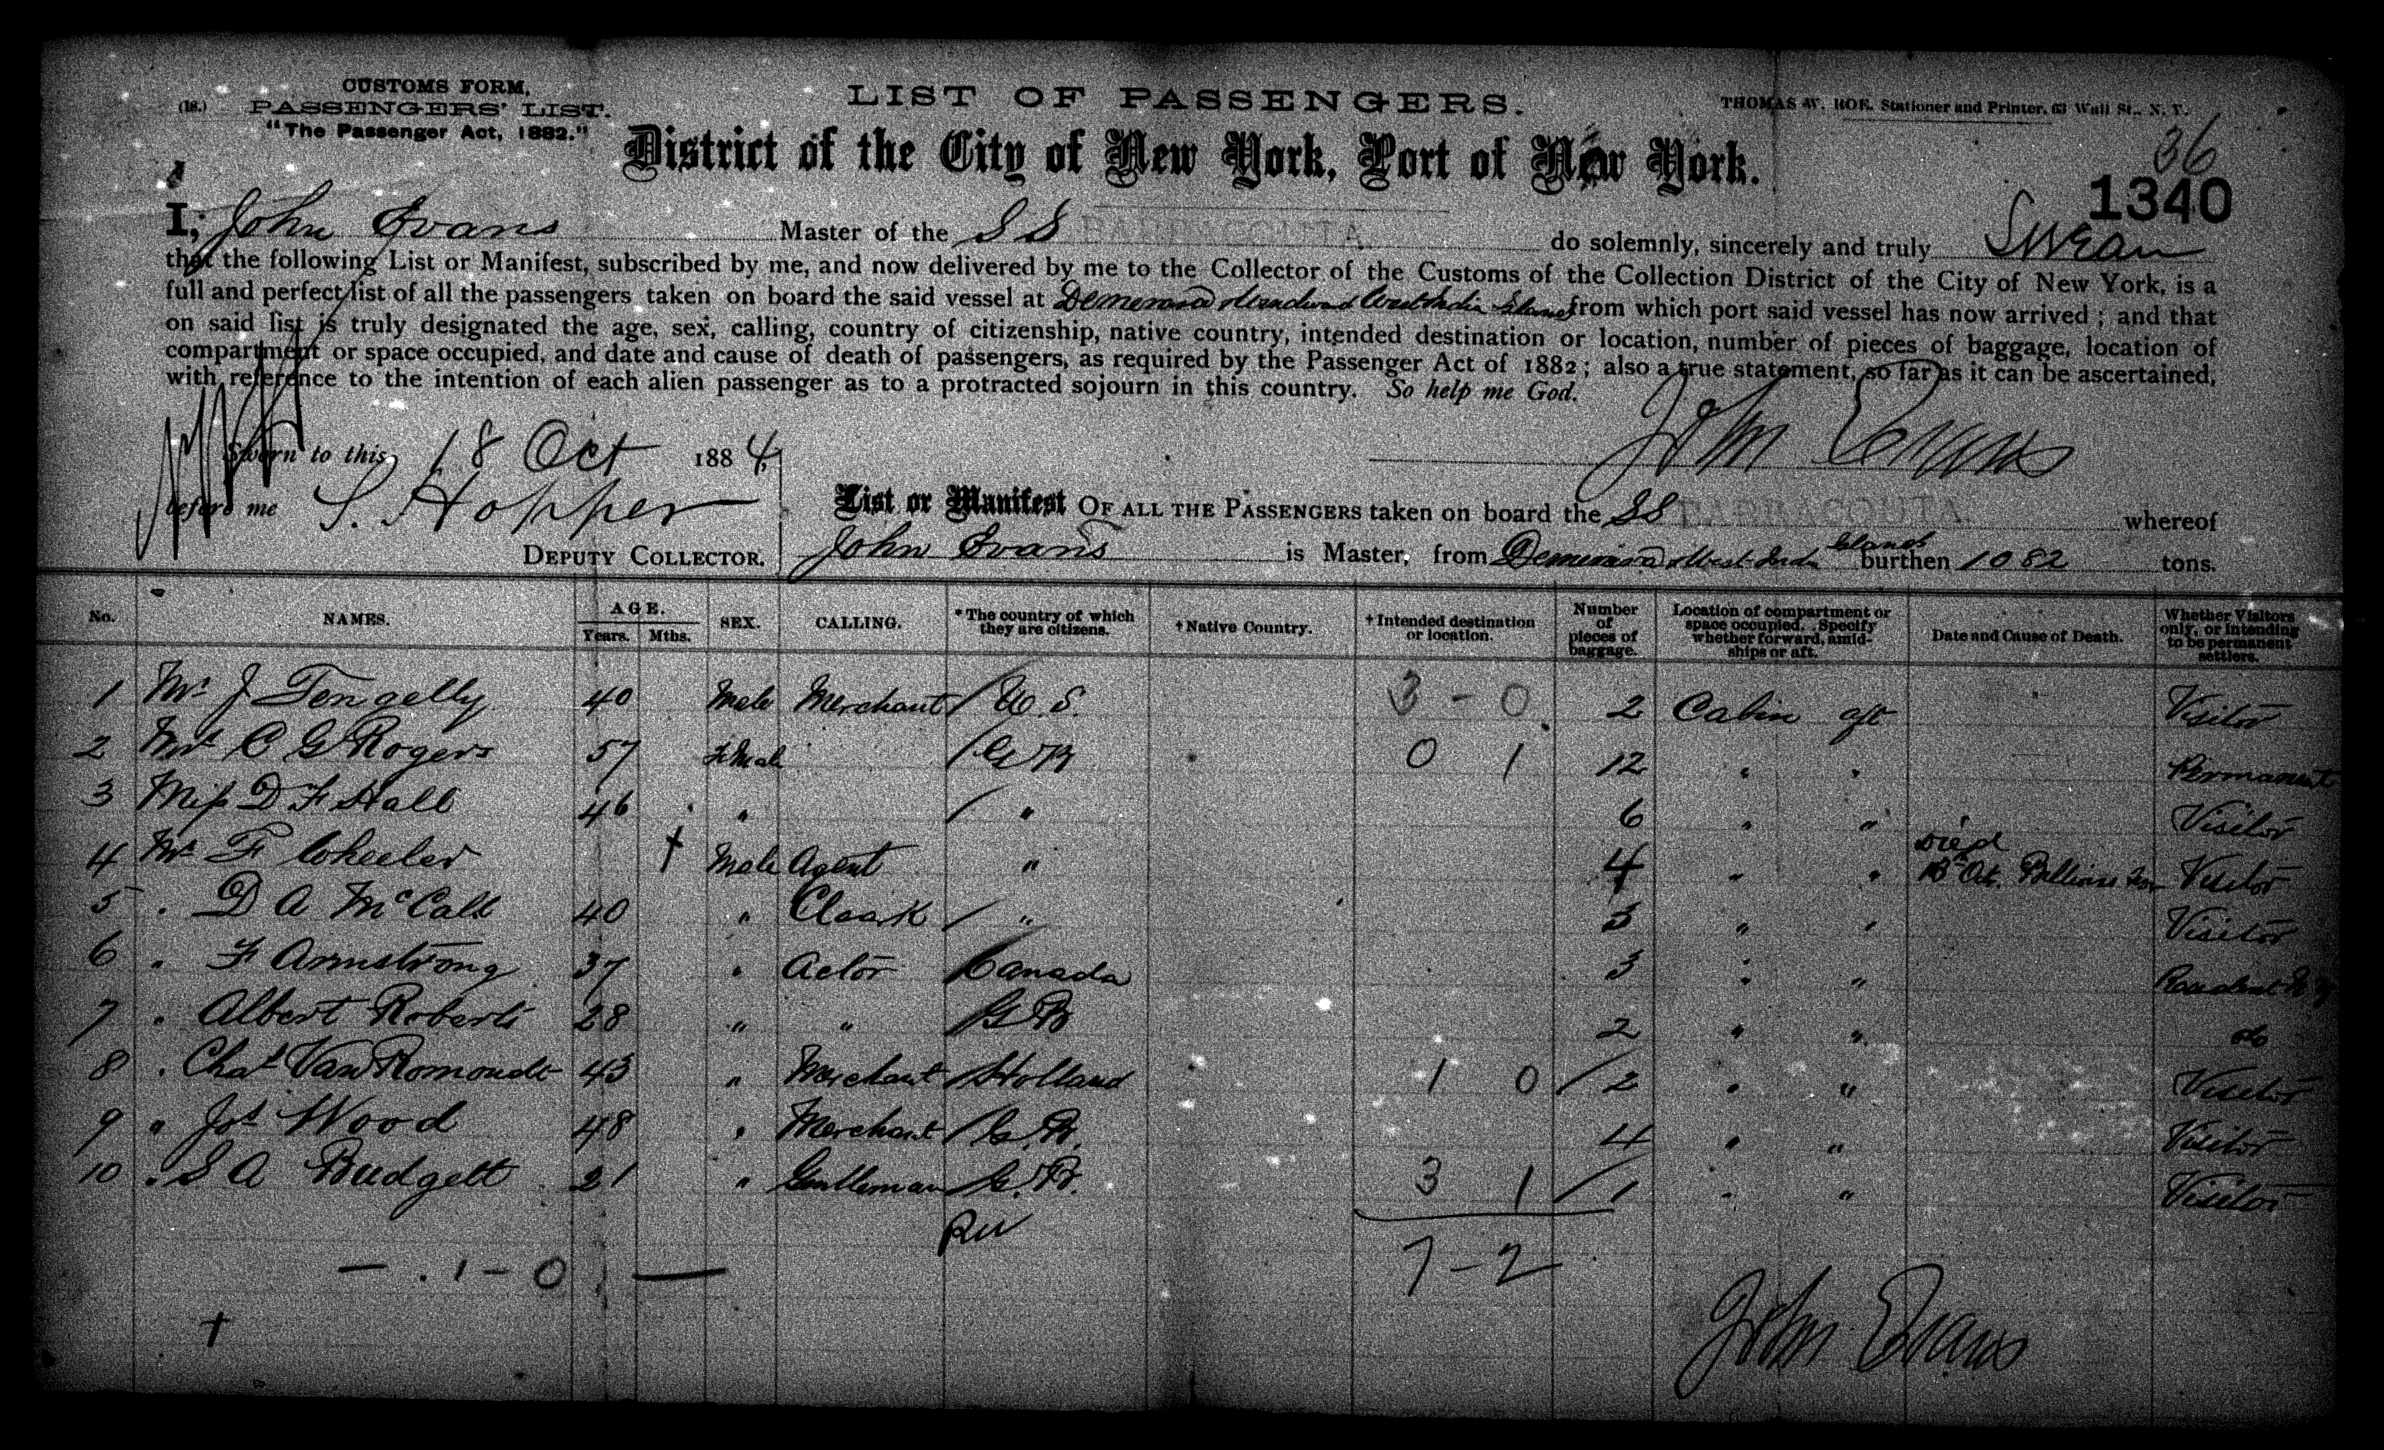 CUSTOMS FORM,
(18.) PASSENGERS' LIST.
"The Passenger Act, 1882."
LIST OF PASSENGERS.
THOMAS W. ROE, Stationer and Printer, 63 Wall St., N. Y.
District of the City of New York, Port of New York.
36
1340
I, John Evans Master of the SS BARRACOUTA do solemnly, sincerely and truly Swear
that the following List or Manifest, subscribed by me, and now delivered by me to the Collector of the Customs of the Collection District of the City of New York, is a
full and perfect list of all the passengers taken on board the said vessel at Demerara & Windward West India Islands from which port said vessel has now arrived; and that
on said list is truly designated the age, sex, calling, country of citizenship, native country, intended destination or location, number of pieces of baggage, location of
compartment or space occupied, and date and cause of death of passengers, as required by the Passenger Act of 1882; also a true statement, so far as it can be ascertained,
with reference to the intention of each alien passenger as to a protracted sojourn in this country. So help me God.
Sworn to this 18 Oct 1884 John Evans
before me S. Hopper
DEPUTY COLLECTOR.
List or Manifest OF ALL THE PASSENGERS taken on board the SS BARRACOUTA whereof
John Evans is Master, from Demerara & West India Islands burthen 1082 tons.
No. NAMES. AGE. Years. Mths. SEX. CALLING. *The country of which they are citizens. †Native Country. †Intended destination or location. Number of pieces of baggage. Location of compartment or space occupied. Specify whether forward, amidships or aft. Date and Cause of Death. Whether Visitors only, or intending to be permanent settlers.
1 Mr J Tengelly 40 Male Merchant / U.S. 3 - 0 2 Cabin aft Visitor
2 Mrs C G Rogers 57 Female / G B 0 1 12 " " Permanent
3 Miss D F Hall 46 " / " 6 " " Visitor
4 Mr F Wheeler † Male Agent " 4 " " Died 13th Oct. Visitor
5 " D A McCall 40 " Cleark / " 3 " " Visitor
6 " F Armstrong 37 " Actor / Canada 3 " " Resident N Y
7 " Albert Roberts 28 " " / G B 2 " " do
8 " Chas Van Romondt 43 " Merchant / Holland 1 0 / 2 " " Visitor
9 " Jos Wood 48 " Merchant / G. B. 4 " " Visitor
10 " S A Budgett 21 " Gentleman / G. B. 3 1 / 1 " " Visitor
7 - 2
— . 1 - 0 —
†
John Evans